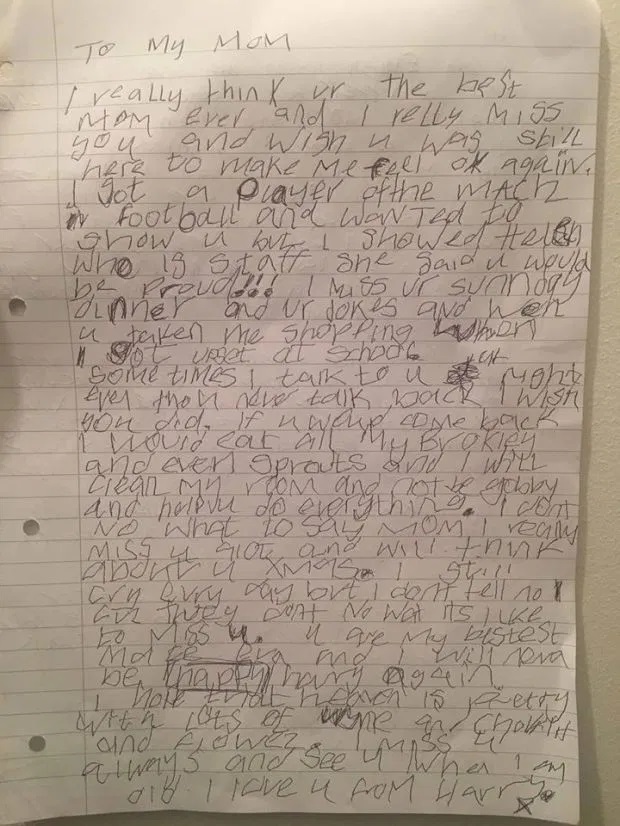 To My MOM
I really think ur the best
MOM ever and I relly Miss
you and wish u was still
here to make me feel ok again.
I got a player ofthe mach
football and wanted to
show u but I showed Helen
who is staff she said u would
be proud!!! I miss ur sunnday
dinner and ur Jokes and wen
u taken me shopping wen
I got upset at school.
Sometimes I talk to u at night
even thou never talk back I wish
you did. If u come back
I would eat all My Brokley
and even sprouts and I will
clean my room and not be gobby
and help u do everything. I dont
No what to say MOM I really
miss u alot and will think
about u Xmas. I still
cry evry day but I dont tell no 1
coz they dont No wat its like
to Miss u. u are my bestest
mate eva and I will neva
be happy harry again
I hope that heaven is pretty
with lots of wyne and
and flowez. I miss u
always and see u when I am
did. I love u from Harry. X